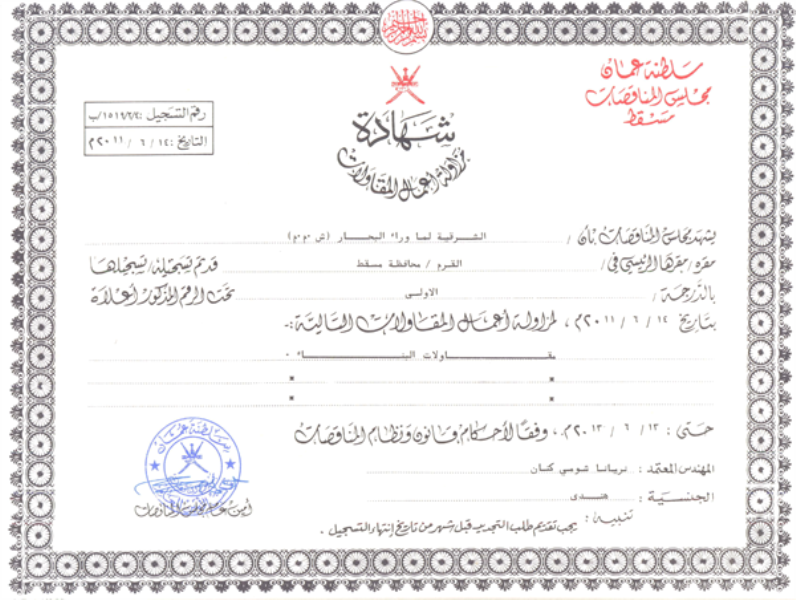 سلطنة عمان
مجلس المناقصات
مسقط
رقم التسجيل :١٥١٩/٢/٤/ب
التاريخ :١٤ / ٦ / ٢٠١١م
شهادة
مزاولة أعمال المقاولات
يشهد مجلس المناقصات بأن / الشرقية لما وراء البحار (ش م م)
مقره/مقرها الرئيسي في / القرم / محافظة مسقط قد تم تسجيله/تسجيلها
بالدرجة / الاولى تحت الرقم المذكور أعلاه
بتاريخ ١٤ / ٦ / ٢٠١١م ، لمزاولة أعمال المقاولات التالية :-
مقاولات البناء .
* *
* *
حتى : ١٣ / ٦ / ٢٠١٣م . ، وفقا لأحكام قانون ونظام المناقصات
المهندس المعتمد : نريانا شومي كنان
الجنسية : هندي
سلطنة عمان
تنبيه : يجب تقديم طلب التجديد قبل شهر من تاريخ إنتهاء التسجيل .